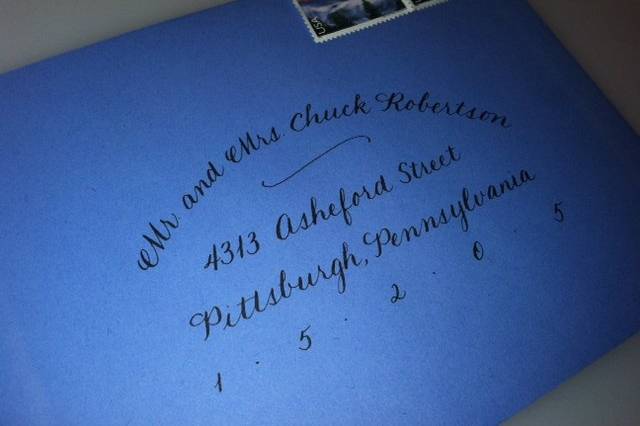 USA
Mr. and Mrs. Chuck Robertson
4313 Asheford Street
Pittsburgh, Pennsylvania
1 · 5 · 2 · 0 · 5